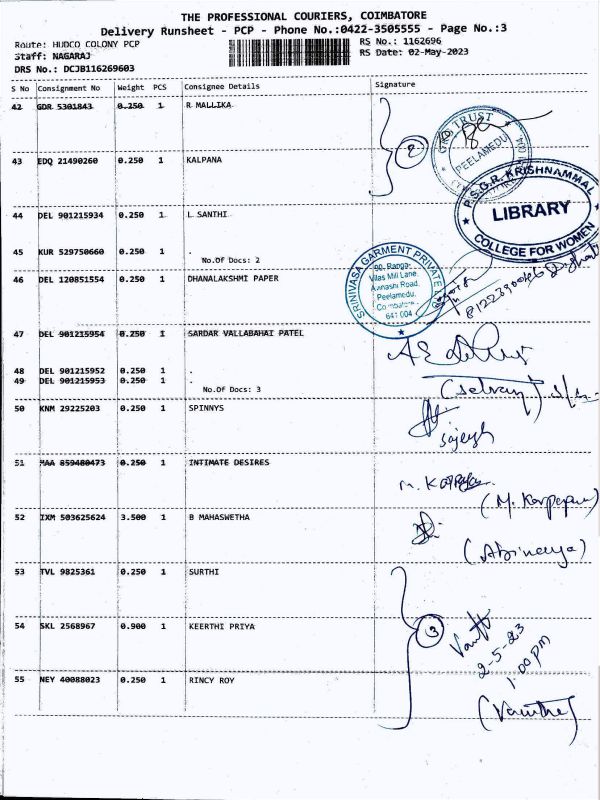 THE PROFESSIONAL COURIERS, COIMBATORE
Delivery Runsheet - PCP - Phone No.:0422-3505555 - Page No.:3
Route: HUDCO COLONY PCP
RS No.: 1162696
Staff: NAGARAJ
RS Date: 02-May-2023
DRS No.: DCJB116269603
S No Consignment No Weight PCS Consignee Details Signature
42 GDR 5301843 0.250 1 R MALLIKA
TRUST
PEELAMEDU
2
43 EDQ 21490260 0.250 1 KALPANA
P.S.G.R. KRISHNAMMAL
LIBRARY
COLLEGE FOR WOMEN
44 DEL 901215934 0.250 1 L SANTHI
45 KUR 529750660 0.250 1 .
No.Of Docs: 2
46 DEL 120851554 0.250 1 DHANALAKSHMI PAPER
SRINIVASA GARMENT PRIVATE
Vilas Mill Lane,
Avinashi Road,
Peelamedu,
Coimbatore
641 004
47 DEL 901215954 0.250 1 SARDAR VALLABAHAI PATEL
48 DEL 901215952 0.250 1 .
49 DEL 901215953 0.250 1 .
No.Of Docs: 3
(Selvam)
50 KNM 29225203 0.250 1 SPINNYS
Sajeesh
51 MAA 859480473 0.250 1 INTIMATE DESIRES
52 IXM 503625624 3.500 1 B MAHASWETHA
(Abinaya)
53 TVL 9825361 0.250 1 SURTHI
54 SKL 2568967 0.900 1 KEERTHI PRIYA
3
2-5-23
1:00 pm
55 NEY 40088023 0.250 1 RINCY ROY